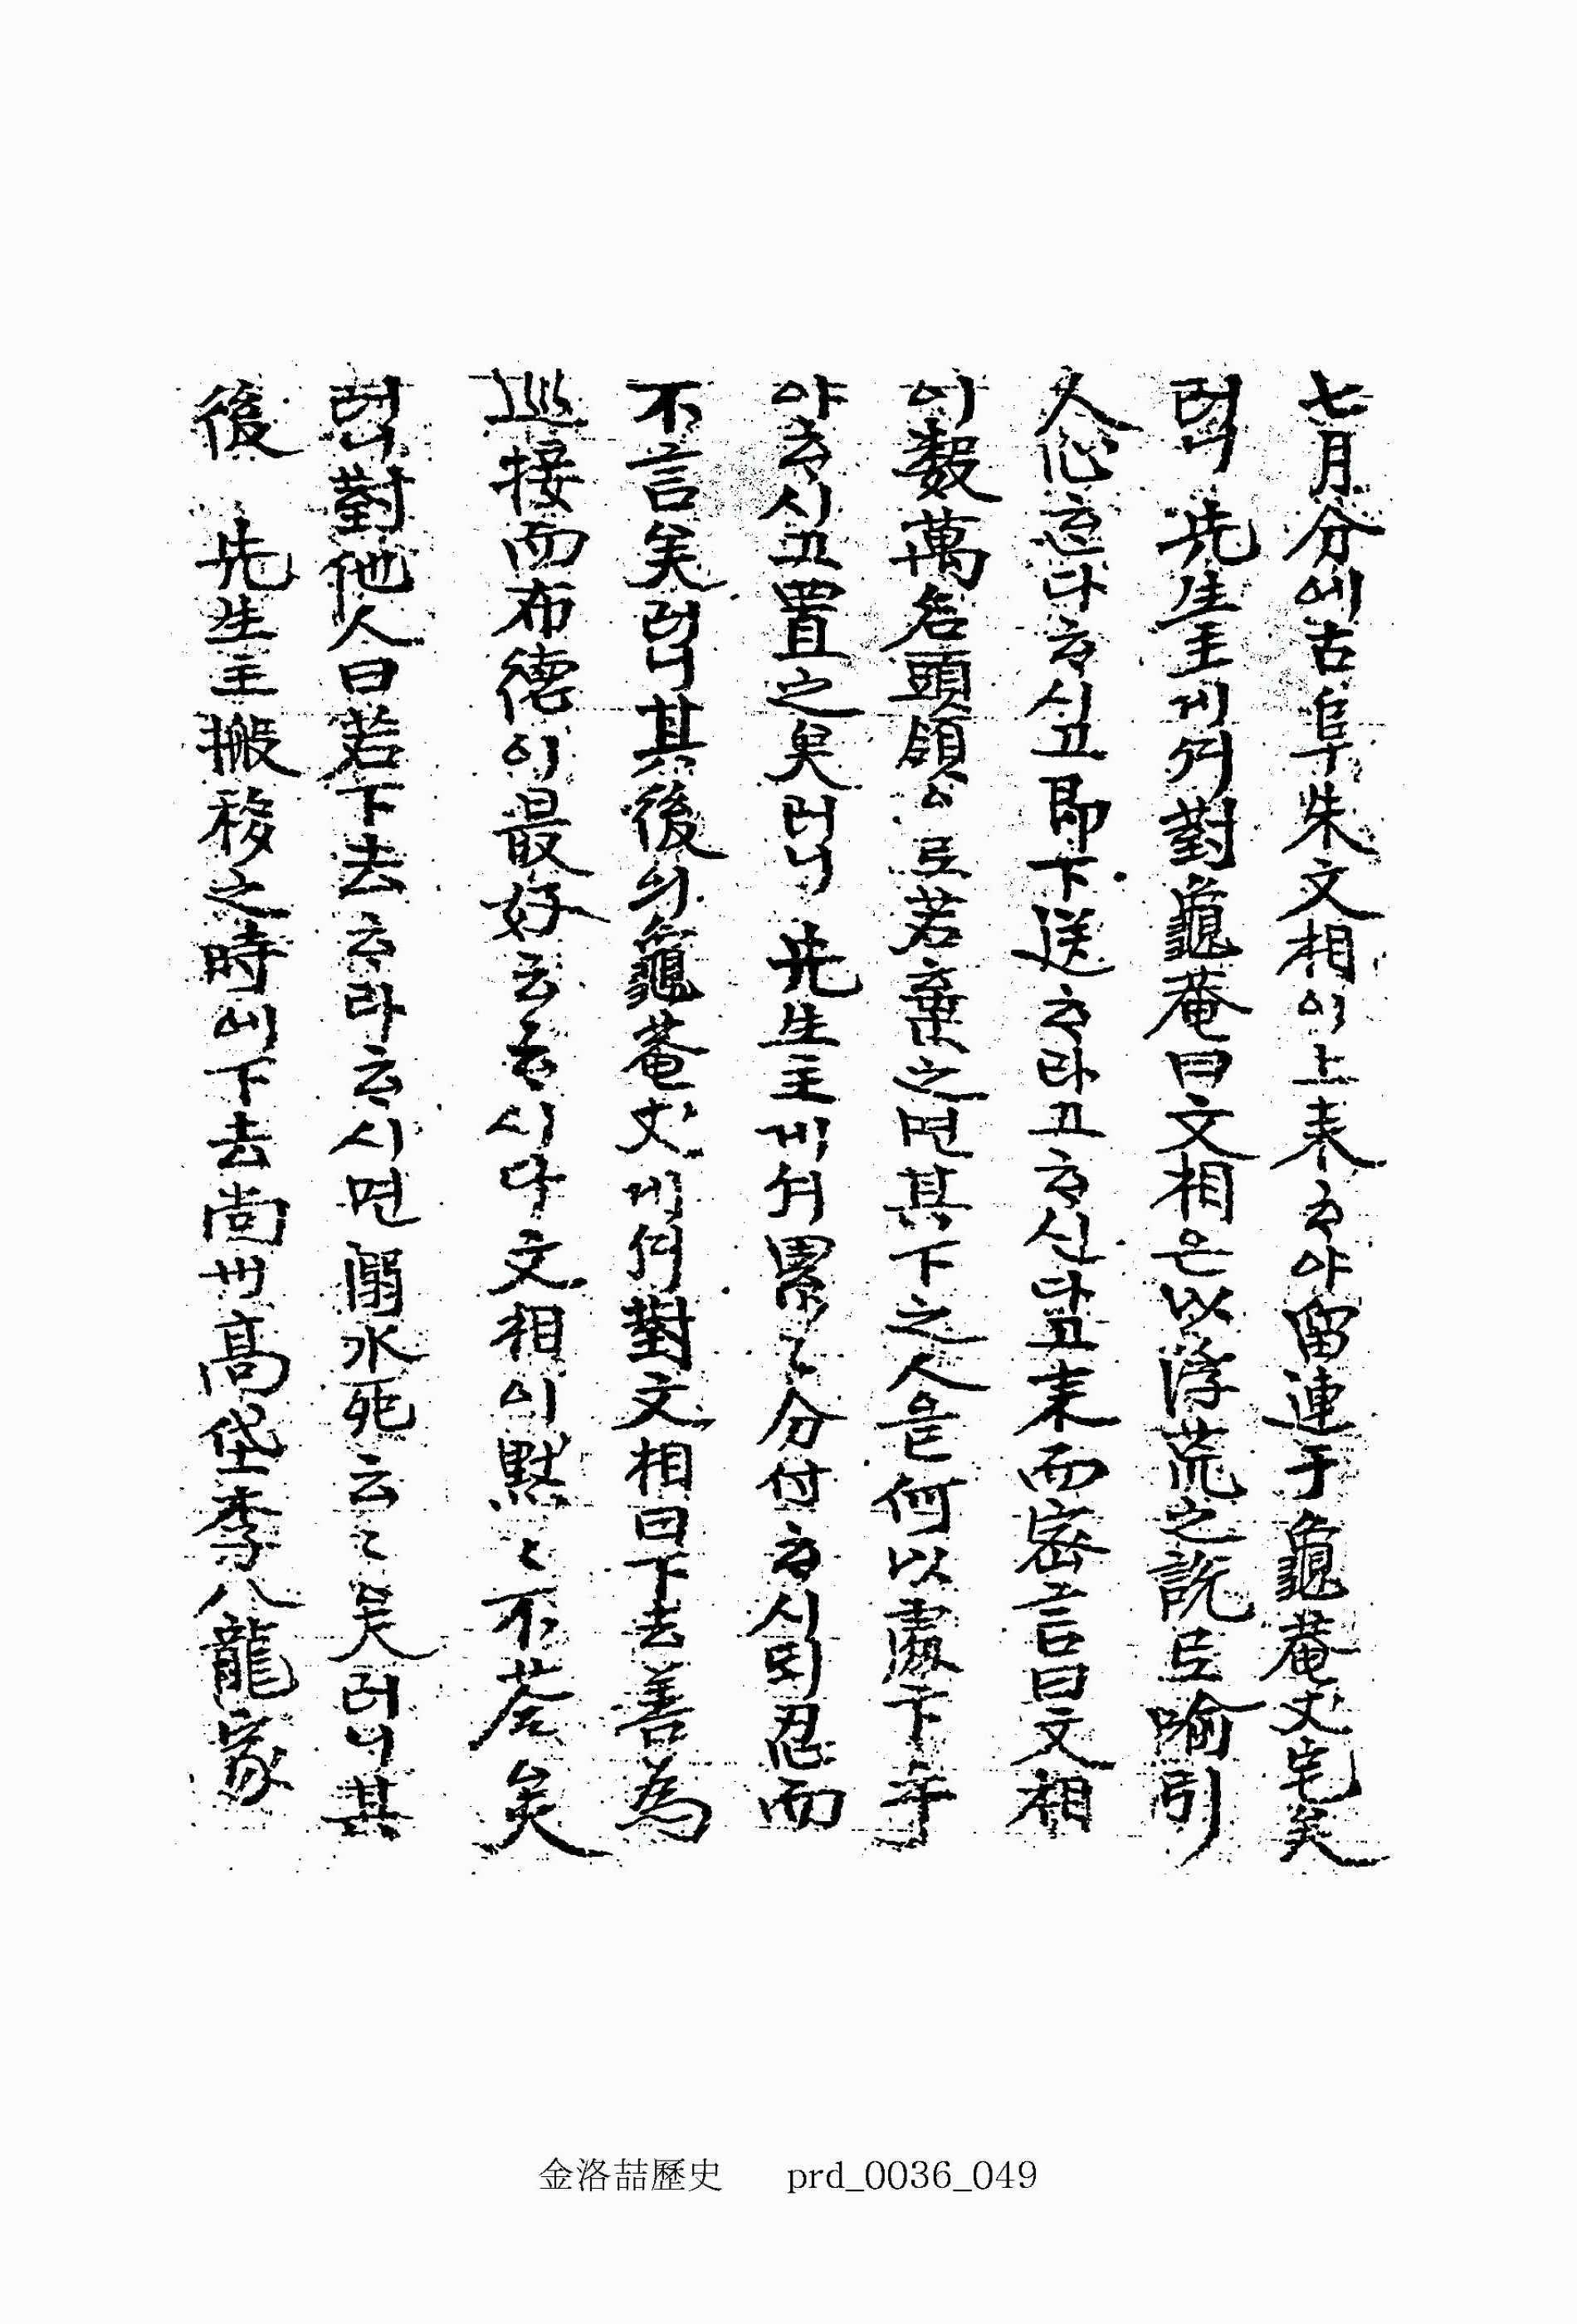 七月分에古阜朱文相이上來ᄒᆞ야留連于龜菴丈宅矣
러니 先生主게셔對龜菴曰文相은以浮荒之說로喩引
人心ᄒᆞᆫ다ᄒᆞ시고卽下送ᄒᆞ라고ᄒᆞ신다고來而密言曰文相
이數萬名頭領으로若棄之면其下之人은何以處下乎
아ᄒᆞ시고置之矣러니 先生主게셔累累分付ᄒᆞ시되忍而
不言矣러니其後의龜菴丈게셔對文相曰下去善爲
巡接而布德이最好云ᄒᆞ시다文相이黙々不答矣
러니對他人曰若下去云라云시면溺水死云々矣러니其
後 先生主搬移之時에下去尙州高垈李八龍家
金洛喆歷史 prd_0036_049